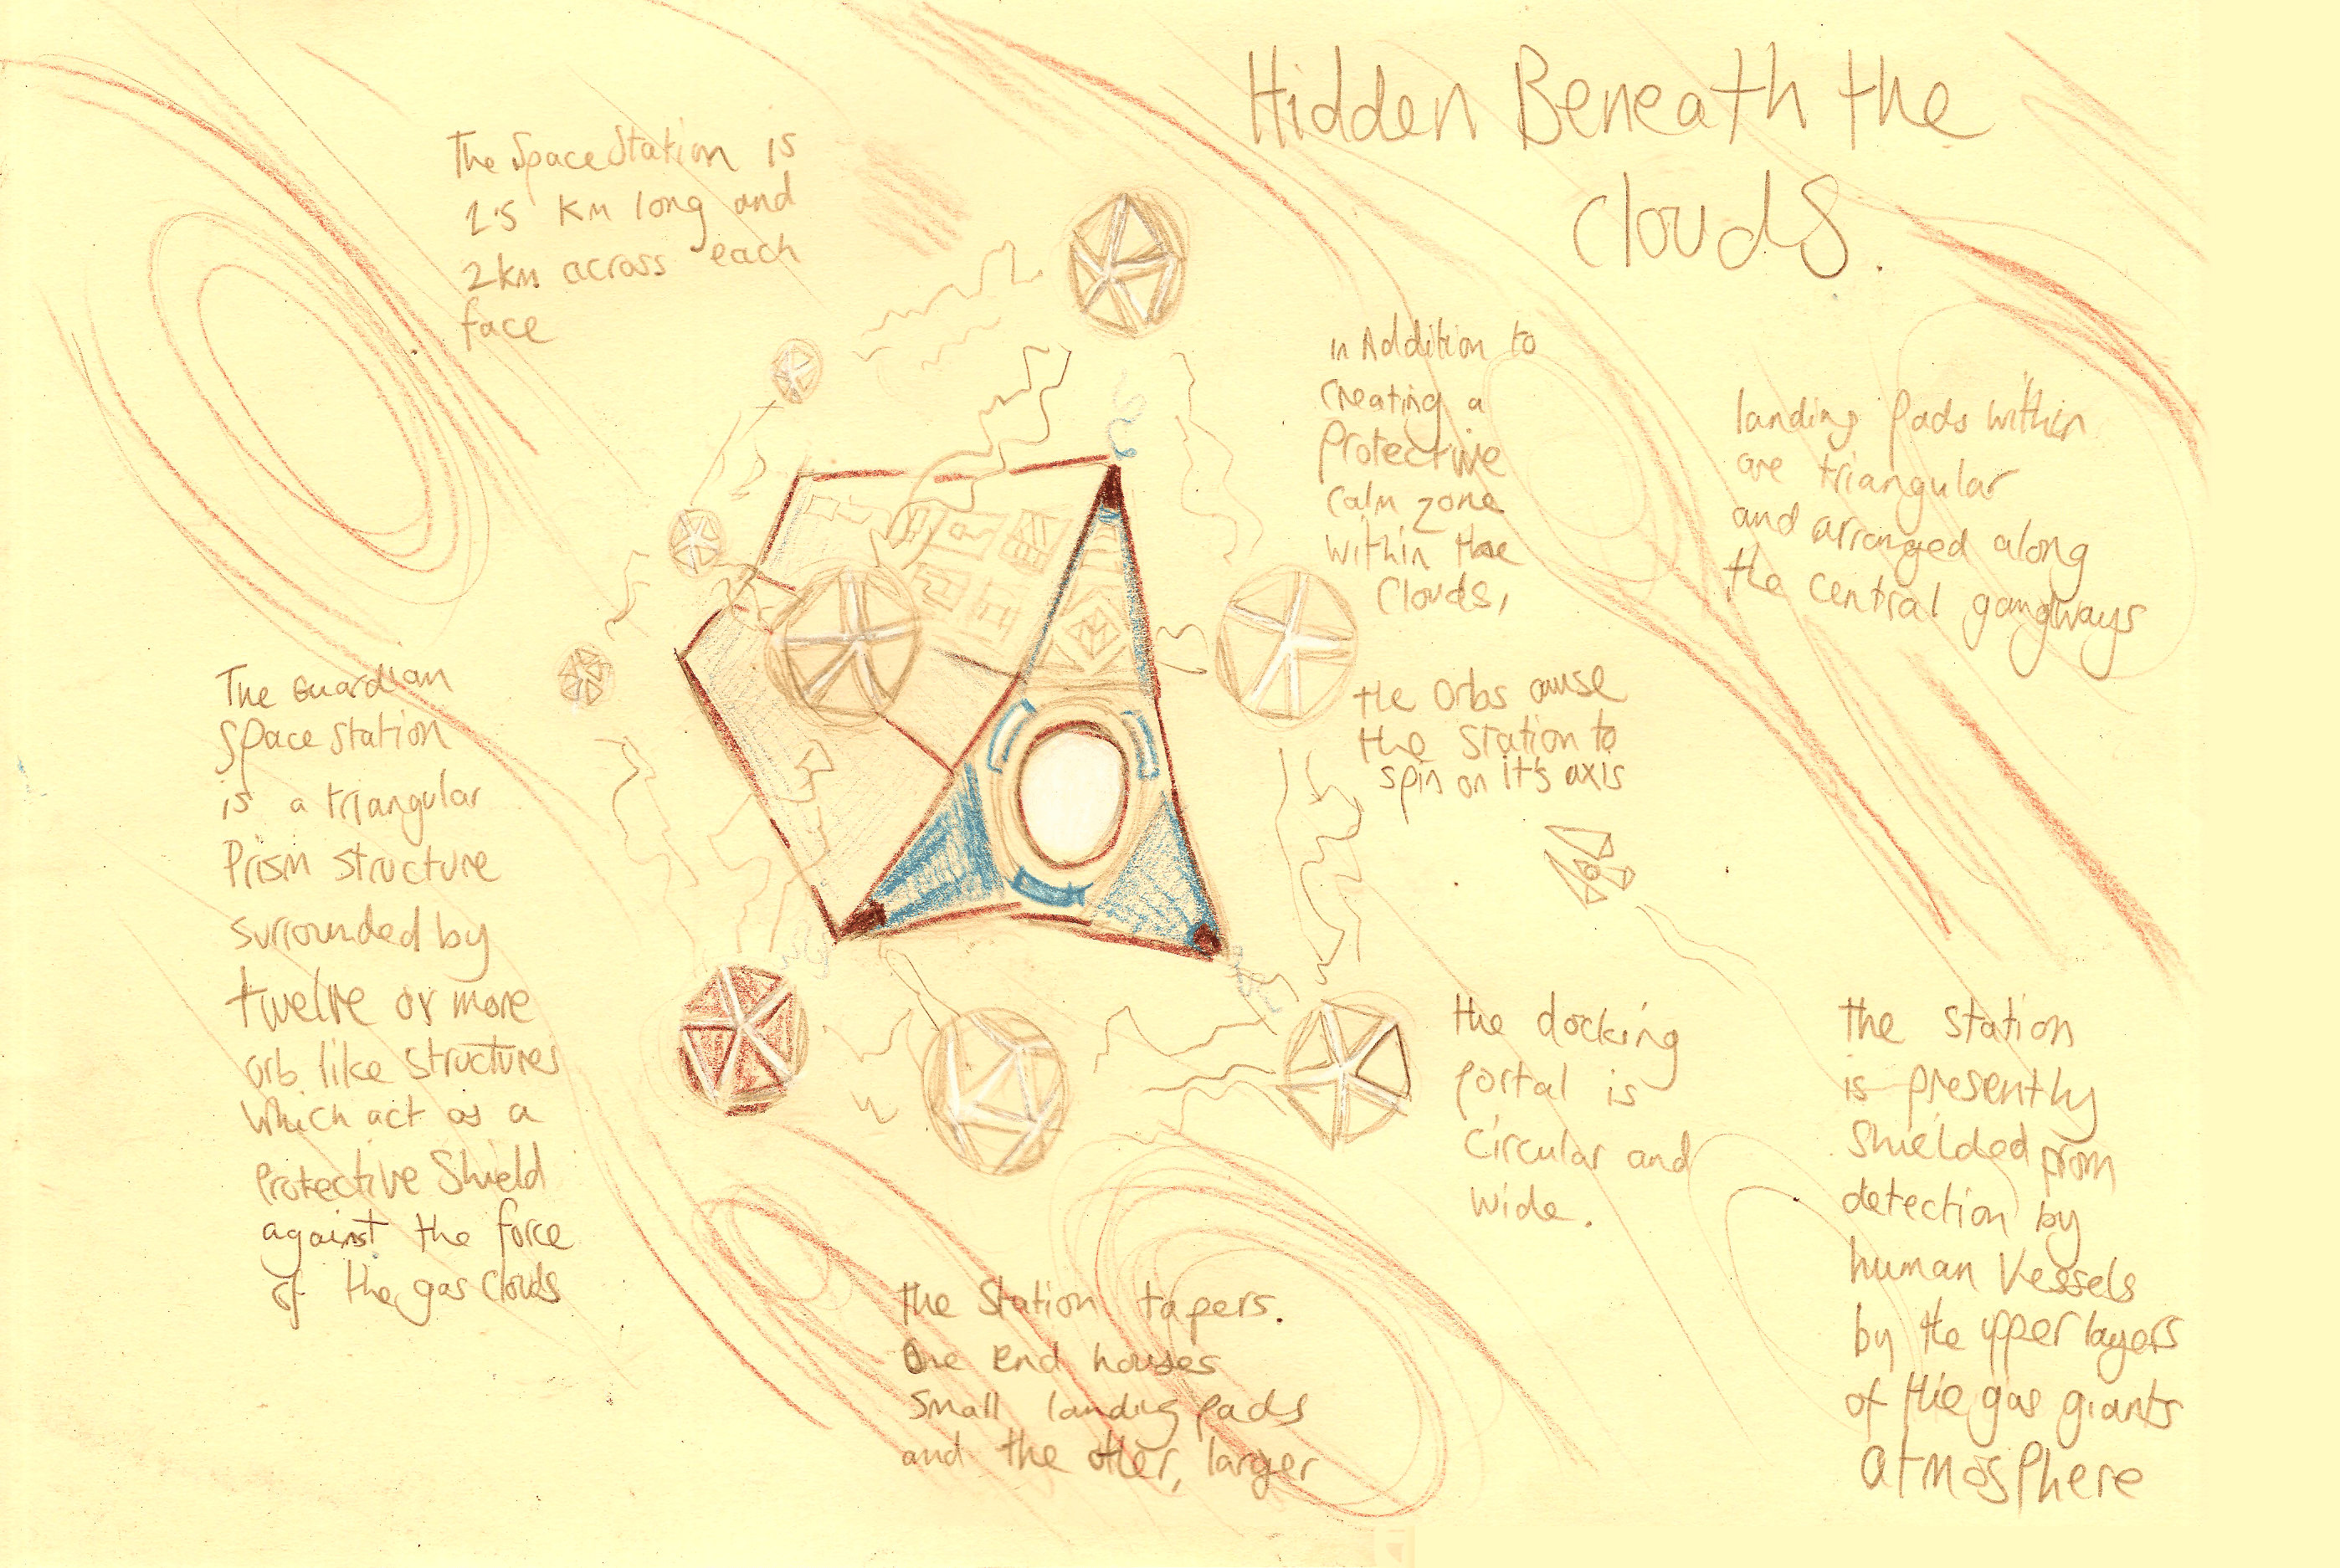 Hidden Beneath the
Clouds.
The Space Station is
2.5 Km long and
2km across each
face
in Addition to
Creating a
Protective
calm zone
within the
Clouds,
the Orbs cause
the Station to
spin on it's axis
landing Pads within
are triangular
and arranged along
the central gangways
The Guardian
Space Station
is a triangular
Prism Structure
surrounded by
twelve or more
orb like structures
which act as a
Protective Shield
against the force
of the gas clouds
the docking
portal is
Circular and
wide.
the Station
is presently
Shielded from
detection by
human Vessels
by the upper layers
of the gas giants
atmosphere
the Station tapers.
One end houses
Small landing pads
and the other, larger